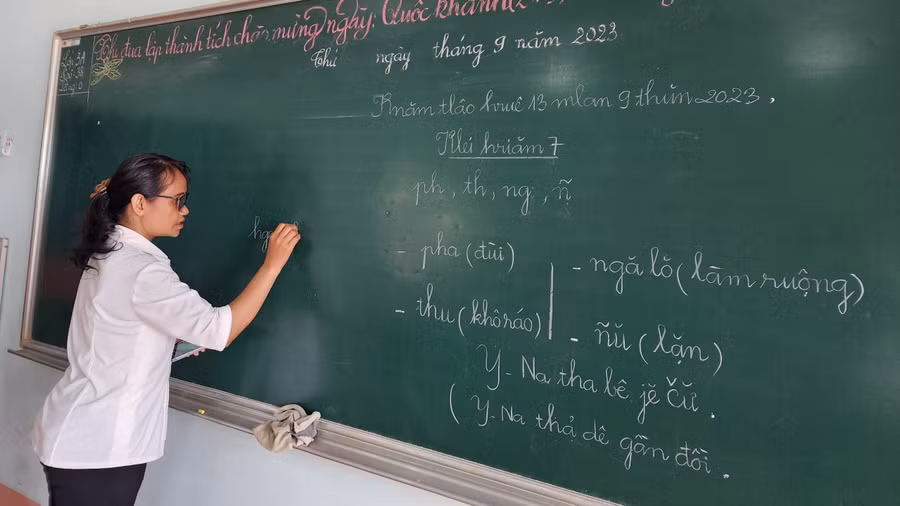 Thi đua lập thành tích chào mừng ngày: Quốc khánh (2-9)
Thứ ngày tháng 9 năm 2023
hruê 13 mlan 9 thŭn 2023.
Klei hriăm 7
ph, th, ng, ñ
- pha (đùi)
- thu (khô ráo)
- ngă lŏ (làm ruộng)
- ñŭ (lặn)
Y-Na tha bê jĕ čŭ.
(Y-Na thả dê gần đồi.